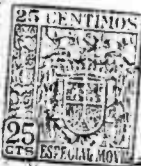 25 CENTIMOS
25
CTS
ESPECIAL MOVIL